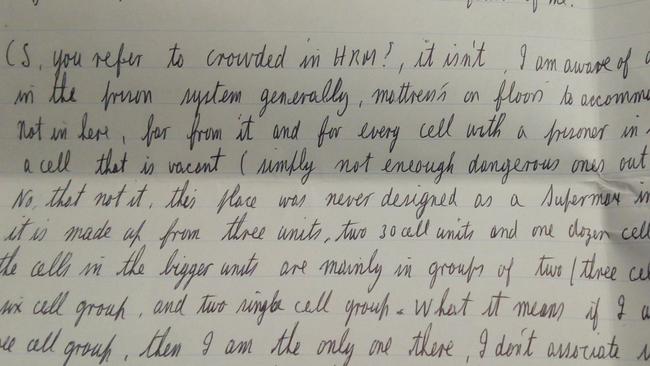 of me.
CS, you refer to crowded in HRM?, it isn't, I am aware of
in the prison system generally, mattress's on floors to accomm
Not in here, far from it and for every cell with a prisoner in
a cell that is vacant (simply not eneough dangerous ones out
No, that not it, this place was never designed as a Supermax in
it is made up from three units, two 30 cell units and one dozen cell
the cells in the bigger units are mainly in groups of two/three cel
six cell group, and two single cell group. What it means if I a
ee cell group, then I am the only one there, I don't associate